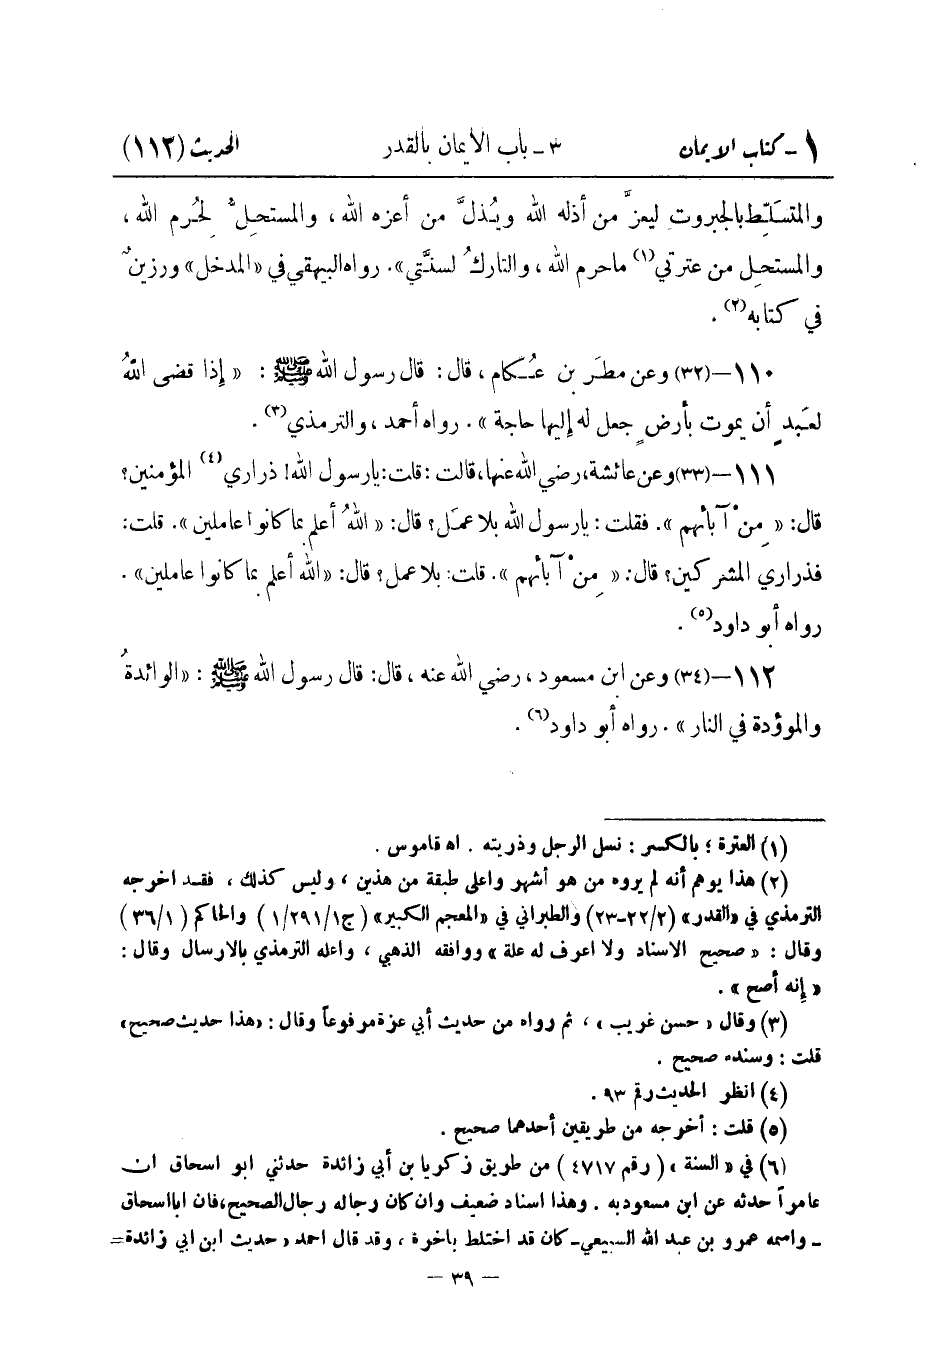 ١ - كتاب الايمان ٣ - باب الأيمان بالقدر الحديث (١١٢)
والمتسَلِّط بالجبروت ليعزَّ من أذله الله ويُذلَّ من أعزه الله ، والمستحلُّ لحُرم الله ،
والمستحل من عترتي(١) ماحرم الله ، والتاركُ لسنَّتي». رواه البيهقي في «المدخل» ورزينٌ
في كتابه(٢) .
١١٠ – (٣٢) وعن مطَر بن عُكام ، قال : قال رسول الله ﷺ : « إذا قضى اللهُ
لعَبدٍ أن يموت بأرضٍ جعل له إليها حاجة » . رواه أحمد ، والترمذي(٣) .
١١١ – (٣٣) وعن عائشة، رضي الله عنها، قالت : قلت: يارسول الله! ذراري(٤) المؤمنين؟
قال: « مِنْ آبائهم ». فقلت : يارسول الله بلا عمَل؟ قال: « اللهُ أعلم بما كانوا عاملين ». قلت:
فذراري المشركين؟ قال: « مِنْ آبائهم ». قلت: بلا عمل؟ قال: «الله أعلم بما كانوا عاملين» .
رواه أبو داود(٥) .
١١٢ – (٣٤) وعن ابن مسعود ، رضي الله عنه ، قال: قال رسول الله ﷺ : «الوائدةُ
والموؤدة في النار » . رواه أبو داود(٦) .
(١) العترة ؛ بالكسر : نسل الرجل وذريته . اه قاموس .
(٢) هذا يوهم أنه لم يروه من هو أشهر واعلى طبقة من هذين ، وليس كذلك ، فقد اخرجه
الترمذي في «القدر» (٢/٢٢-٢٣) والطبراني في «المعجم الكبير» (ج١/٢٩١/١) والحاكم (٣٦/١)
وقال : « صحيح الاسناد ولا اعرف له علة » ووافقه الذهبي ، واعله الترمذي بالارسال وقال :
« إنه أصح » .
(٣) وقال « حسن غريب » ، ثم رواه من حديث أبي عزة مرفوعاً وقال : «هذا حديث صحيح»
قلت : وسنده صحيح .
(٤) انظر الحديث رقم ٩٣ .
(٥) قلت : أخرجه من طريقين أحدهما صحيح .
(٦) في « السنة » ( رقم ٤٧١٧ ) من طريق زكريا بن أبي زائدة حدثني ابو اسحاق ان
عامراً حدثه عن ابن مسعود به . وهذا اسناد ضعيف وان كان رجاله رجال الصحيح، فان ابا اسحاق
ـ واسمه عمرو بن عبد الله السبيعي ـ كان قد اختلط باخرة ، وقد قال احمد « حديث ابن ابي زائدة =
— ٣٩ —